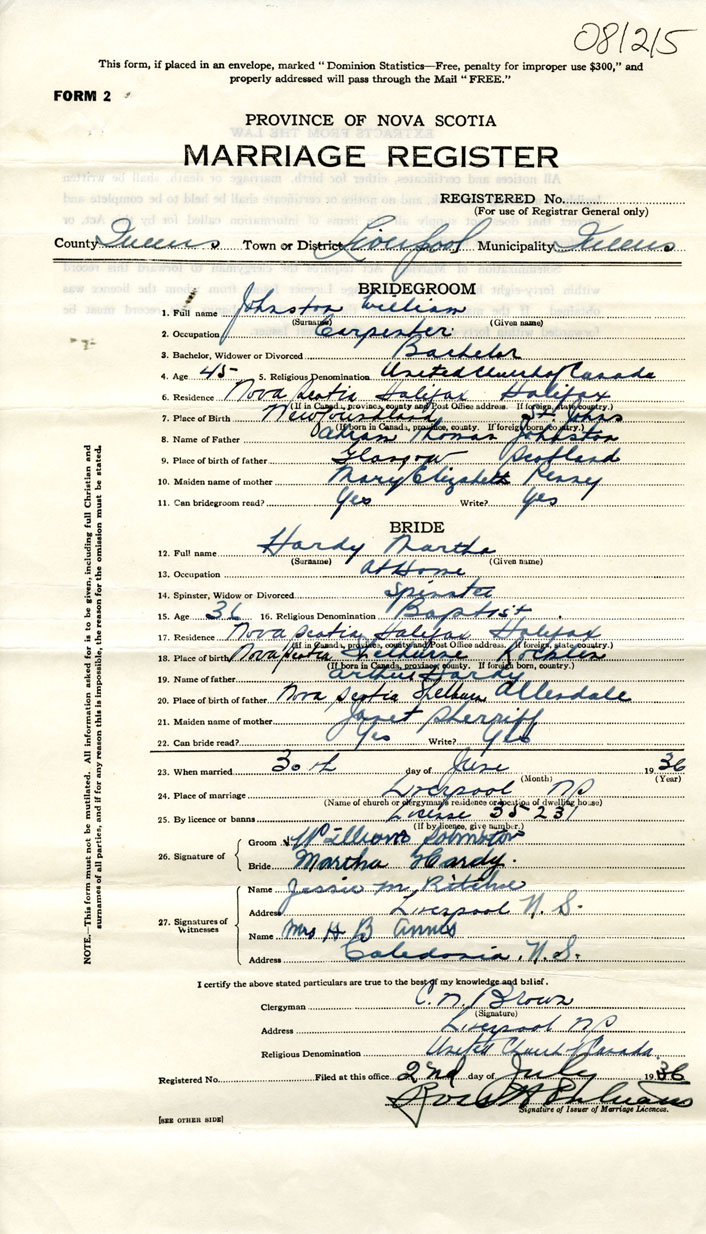 081215
This form, if placed in an envelope, marked "Dominion Statistics—Free, penalty for improper use $300," and
properly addressed will pass through the Mail "FREE."
FORM 2
PROVINCE OF NOVA SCOTIA
MARRIAGE REGISTER
REGISTERED No.
(For use of Registrar General only)
County Queens Town or District Liverpool Municipality Queens
BRIDEGROOM
1. Full name Johnston William
(Surname) (Given name)
2. Occupation Carpenter
3. Bachelor, Widower or Divorced Bachelor
4. Age 45 5. Religious Denomination United Church of Canada
6. Residence Nova Scotia Halifax Halifax
(If in Canada, province, county and Post Office address. If foreign, state country.)
7. Place of Birth Newfoundland St. Johns
(If born in Canada, province, county. If foreign born, country.)
8. Name of Father Thomas Johnston
9. Place of birth of father Glasgow Scotland
10. Maiden name of mother Mary Elizabeth
11. Can bridegroom read? Yes Write? Yes
BRIDE
12. Full name Hardy Martha
(Surname) (Given name)
13. Occupation At Home
14. Spinster, Widow or Divorced Spinster
15. Age 36 16. Religious Denomination Baptist
17. Residence Nova Scotia Halifax Halifax
(If in Canada, province, county and Post Office address. If foreign, state country.)
18. Place of birth Nova Scotia Shelburne
(If born in Canada, province, county. If foreign born, country.)
19. Name of father Arthur Hardy
20. Place of birth of father Nova Scotia Allendale
21. Maiden name of mother Janet Sherriff
22. Can bride read? Yes Write? Yes
23. When married 30th day of June 1936
(Month) (Year)
24. Place of marriage Liverpool NS
(Name of church or clergyman's residence or location of dwelling house)
25. By licence or banns License 35231
(If by licence, give number.)
26. Signature of Groom William Johnston
Bride Martha Hardy.
27. Signatures of Witnesses Name Jessie M. Ritchie
Address Liverpool N. S.
Name Mrs H B Annis
Address Caledonia, N.S.
I certify the above stated particulars are true to the best of my knowledge and belief.
Clergyman C. N. Brown
(Signature)
Address Liverpool NS
Religious Denomination United Church of Canada
Registered No. Filed at this office 2nd day of July 1936
Signature of Issuer of Marriage Licences.
[SEE OTHER SIDE]
NOTE.—This form must not be mutilated. All information asked for is to be given, including full Christian and
surnames of all parties, and if for any reason this is impossible, the reason for the omission must be stated.